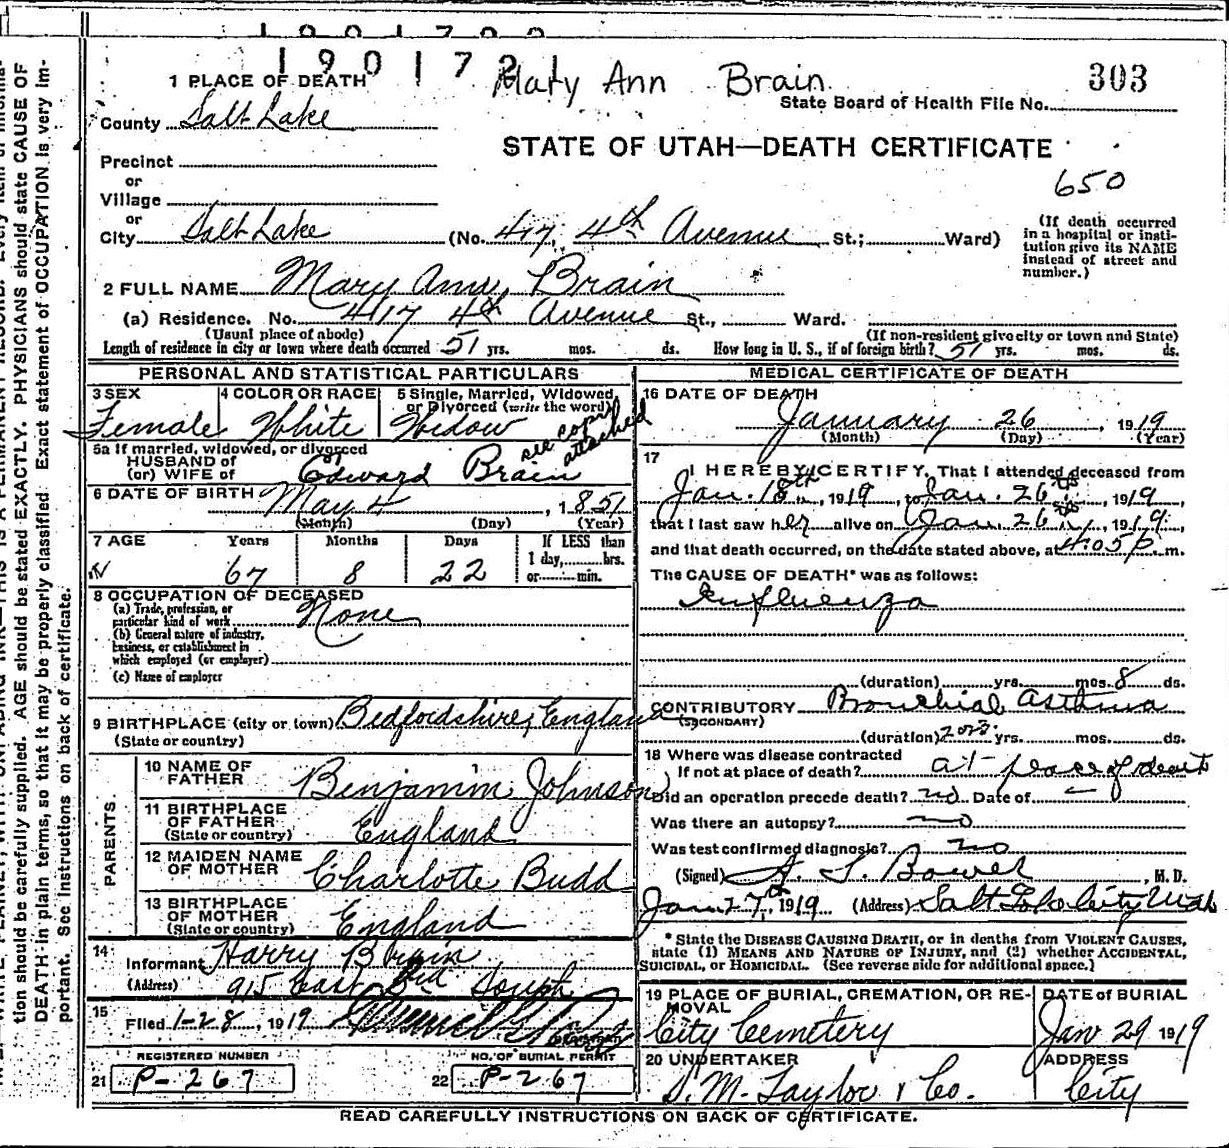 1901792
1 PLACE OF DEATH
Mary Ann Brain
303
State Board of Health File No.
County Salt Lake
STATE OF UTAH—DEATH CERTIFICATE
Precinct
650
or
Village
or
City Salt Lake (No. 417, 4th Avenue St.; Ward)
(If death occurred in a hospital or institution give its NAME instead of street and number.)
2 FULL NAME Mary Ann Brain
(a) Residence. No. 417 4th Avenue St., Ward.
(Usual place of abode) (If non-resident give city or town and State)
Length of residence in city or town where death occurred 51 yrs. mos. ds. How long in U. S., if of foreign birth? 51 yrs. mos. ds.
PERSONAL AND STATISTICAL PARTICULARS
3 SEX Female
4 COLOR OR RACE White
5 Single, Married, Widowed or Divorced (write the word) Widow
see copy attached
5a If married, widowed, or divorced
HUSBAND of
(or) WIFE of Edward Brain
6 DATE OF BIRTH May 4, 1851
(Month) (Day) (Year)
7 AGE Years Months Days If LESS than
67 8 22 1 day, hrs.
or min.
8 OCCUPATION OF DECEASED
(a) Trade, profession, or
particular kind of work None
(b) General nature of industry,
business, or establishment in
which employed (or employer)
(c) Name of employer
9 BIRTHPLACE (city or town) Bedfordshire, England
(State or country)
PARENTS
10 NAME OF FATHER Benjamin Johnson
11 BIRTHPLACE OF FATHER England
(State or country)
12 MAIDEN NAME OF MOTHER Charlotte Budd
13 BIRTHPLACE OF MOTHER England
(State or country)
14
Informant Harry Brain
(Address) 915 East 3rd South
15
Filed 1-28, 1919
REGISTERED NUMBER
21 P-267
NO. OF BURIAL PERMIT
22 P-267
MEDICAL CERTIFICATE OF DEATH
16 DATE OF DEATH
January 26, 1919
(Month) (Day) (Year)
17
I HEREBY CERTIFY, That I attended deceased from
Jan. 18th, 1919, to Jan. 26th, 1919,
that I last saw her alive on Jan 26th, 1919,
and that death occurred, on the date stated above, at 4:05 P. m.
The CAUSE OF DEATH* was as follows:
Influenza
(duration) yrs. mos. 8 ds.
CONTRIBUTORY Bronchial Asthma
(SECONDARY)
(duration) 2 or 3 yrs. mos. ds.
18 Where was disease contracted
If not at place of death? at place of death
Did an operation precede death? no Date of —
Was there an autopsy? no
Was test confirmed diagnosis? no
(Signed) A. J. Bower, M. D.
Jan 27th, 1919 (Address) Salt Lake City Utah
* State the DISEASE CAUSING DEATH, or in deaths from VIOLENT CAUSES,
state (1) MEANS AND NATURE OF INJURY, and (2) whether ACCIDENTAL,
SUICIDAL, or HOMICIDAL. (See reverse side for additional space.)
19 PLACE OF BURIAL, CREMATION, OR REMOVAL
City Cemetery
DATE of BURIAL
Jan 29 1919
20 UNDERTAKER
S. M. Taylor & Co.
ADDRESS
City
READ CAREFULLY INSTRUCTIONS ON BACK OF CERTIFICATE.
tion should be carefully supplied. AGE should be stated EXACTLY. PHYSICIANS should state CAUSE OF
DEATH in plain terms, so that it may be properly classified. Exact statement of OCCUPATION is very im-
portant. See instructions on back of certificate.